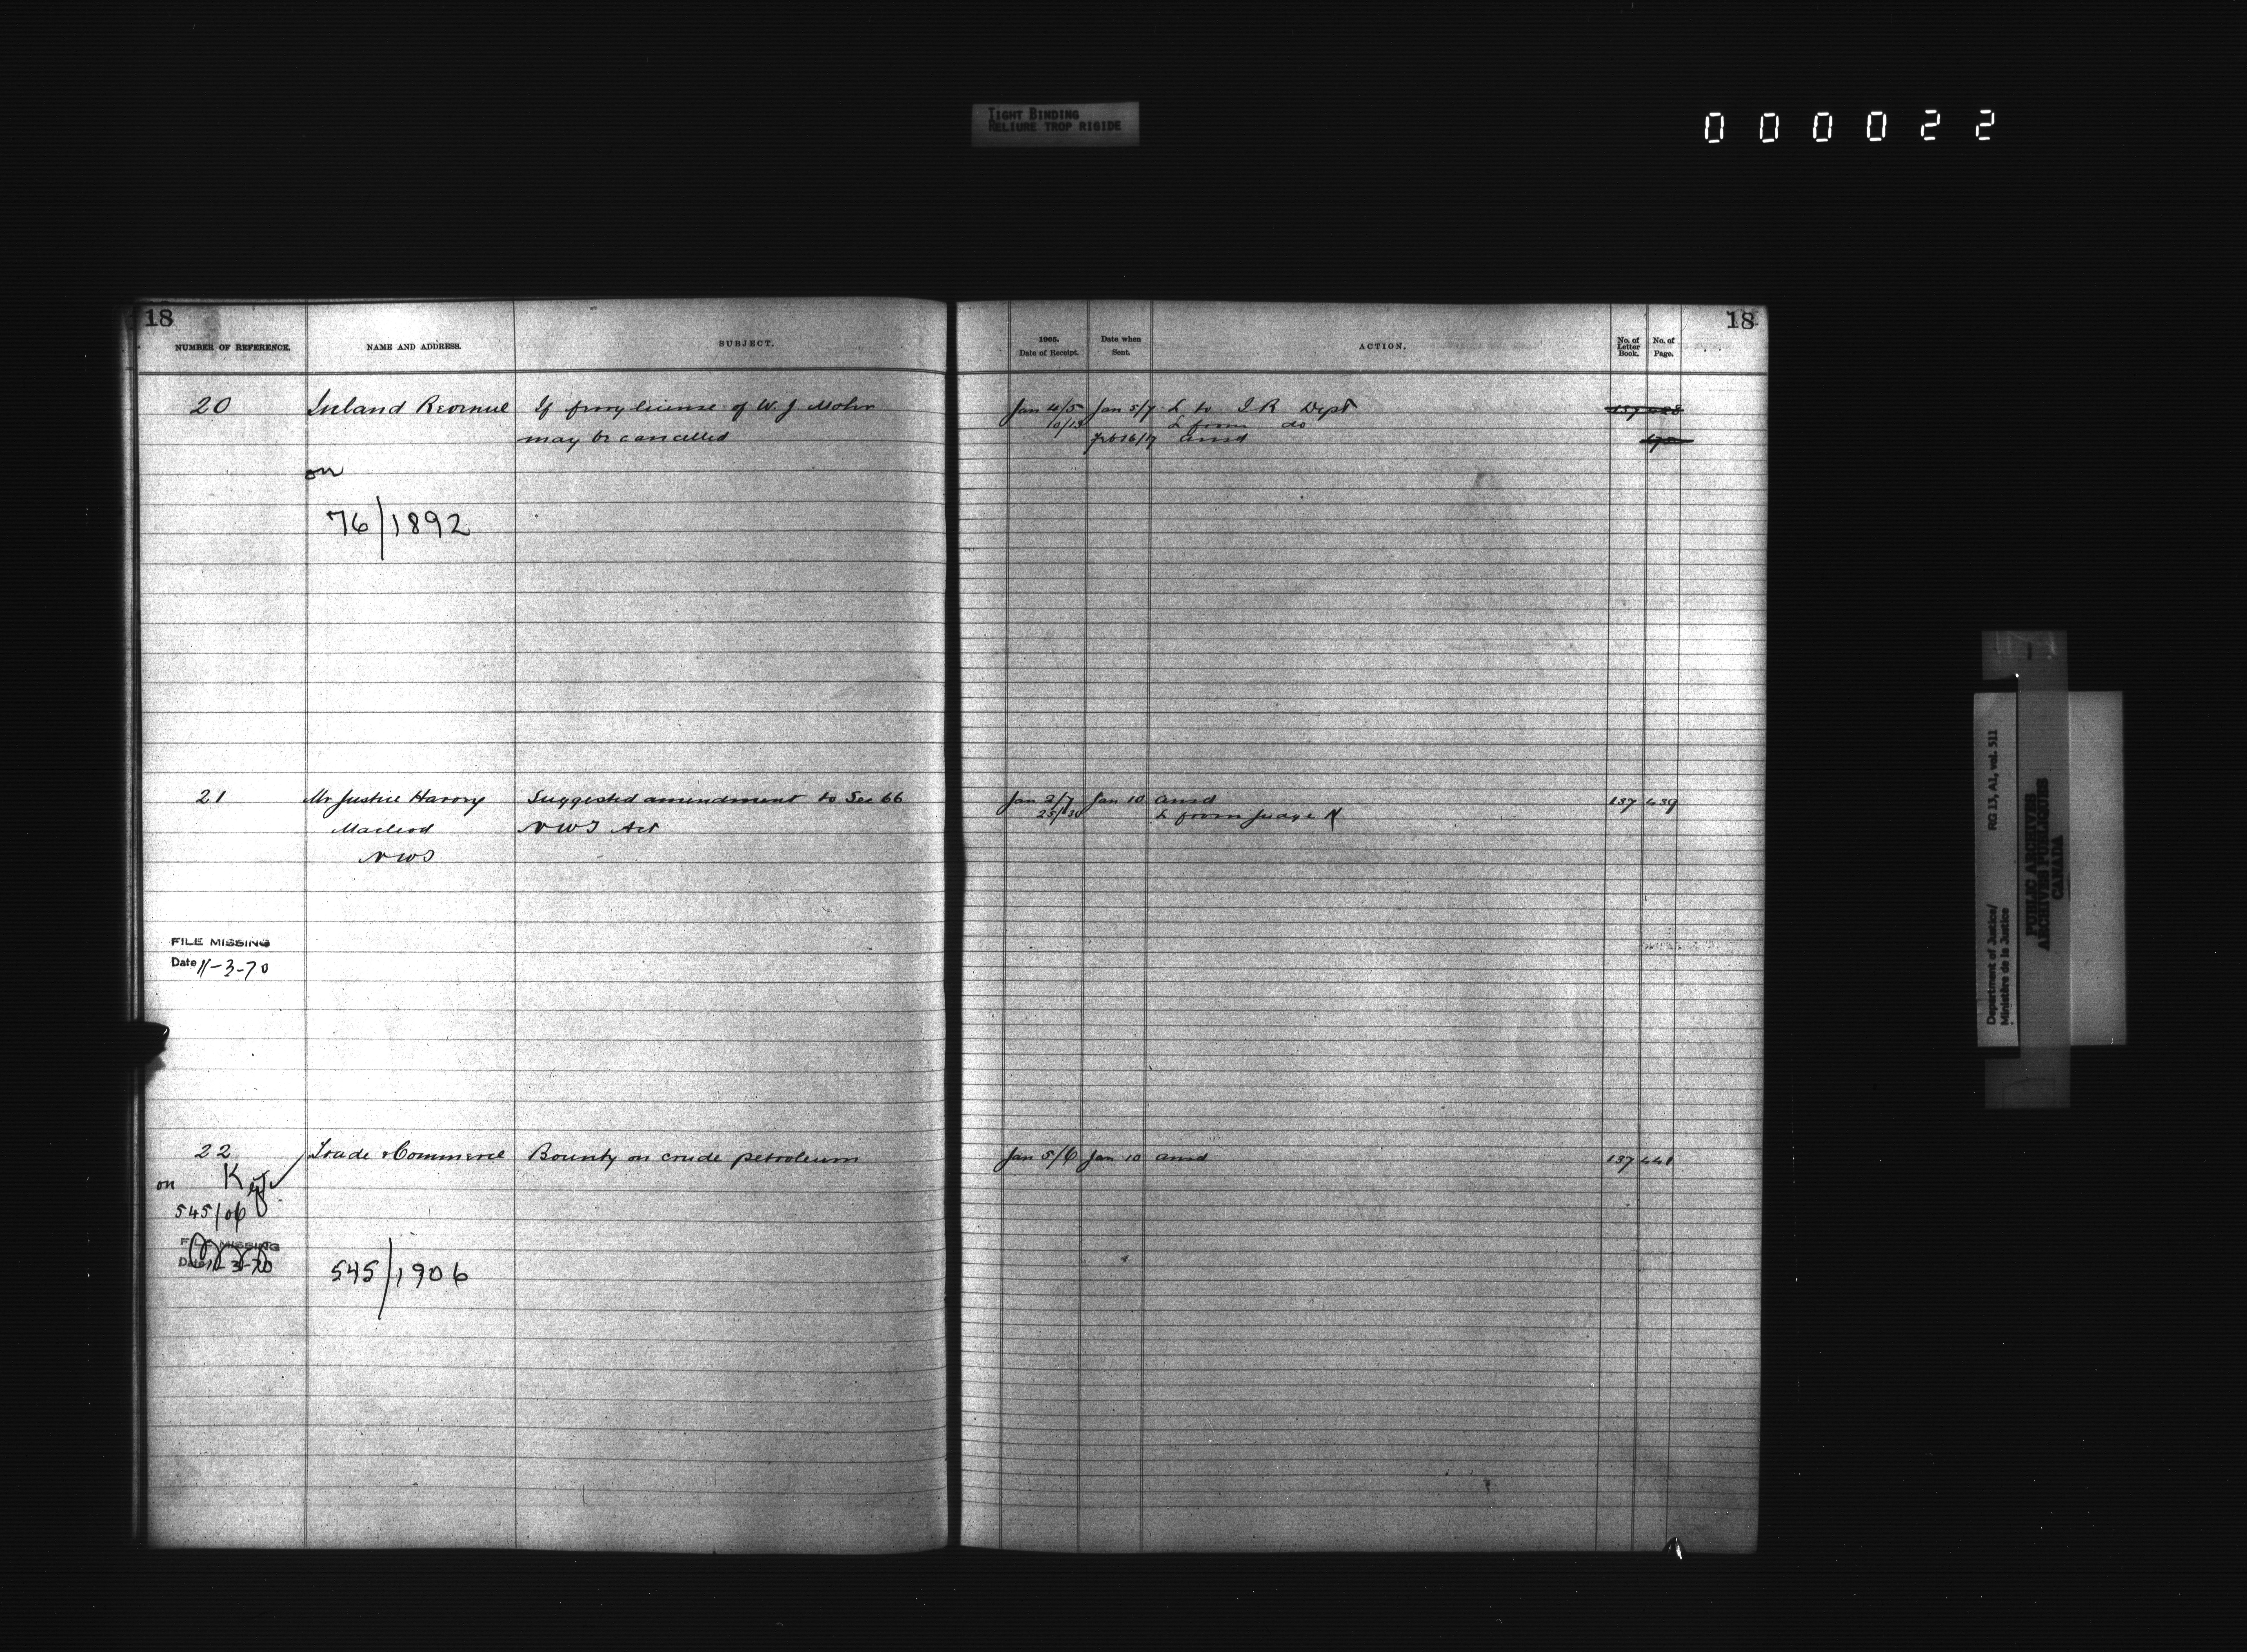 TIGHT BINDING
RELIURE TROP RIGIDE
000022
18
NUMBER OF REFERENCE.
NAME AND ADDRESS.
SUBJECT.
20
Inland Revenue
If ferry license of W. J. Mohr
may be cancelled
on
76/1892
21
Mr Justice Harvey
Macleod
NWT
Suggested amendment to Sec 66
NWT Act
FILE MISSING
Date 11-3-70
22
Trade & Commerce
Bounty on crude petroleum
on
545/06
FILE MISSING
Date 11-3-70
545/1906
18
1905.
Date of Receipt.
Date when
Sent.
ACTION.
No. of
Letter
Book.
No. of
Page.
Jan 4/5 Jan 5/7 L to I R Dept
10/13 L from do
Feb 16/17 ansd
Jan 2/7 Jan 10 ansd 137 439
L from Judge H
Jan 5/6 Jan 10 ansd 137 441
Department of Justice/ RG 13, A1, vol. 511
Ministère de la Justice
PUBLIC ARCHIVES
ARCHIVES PUBLIQUES
CANADA